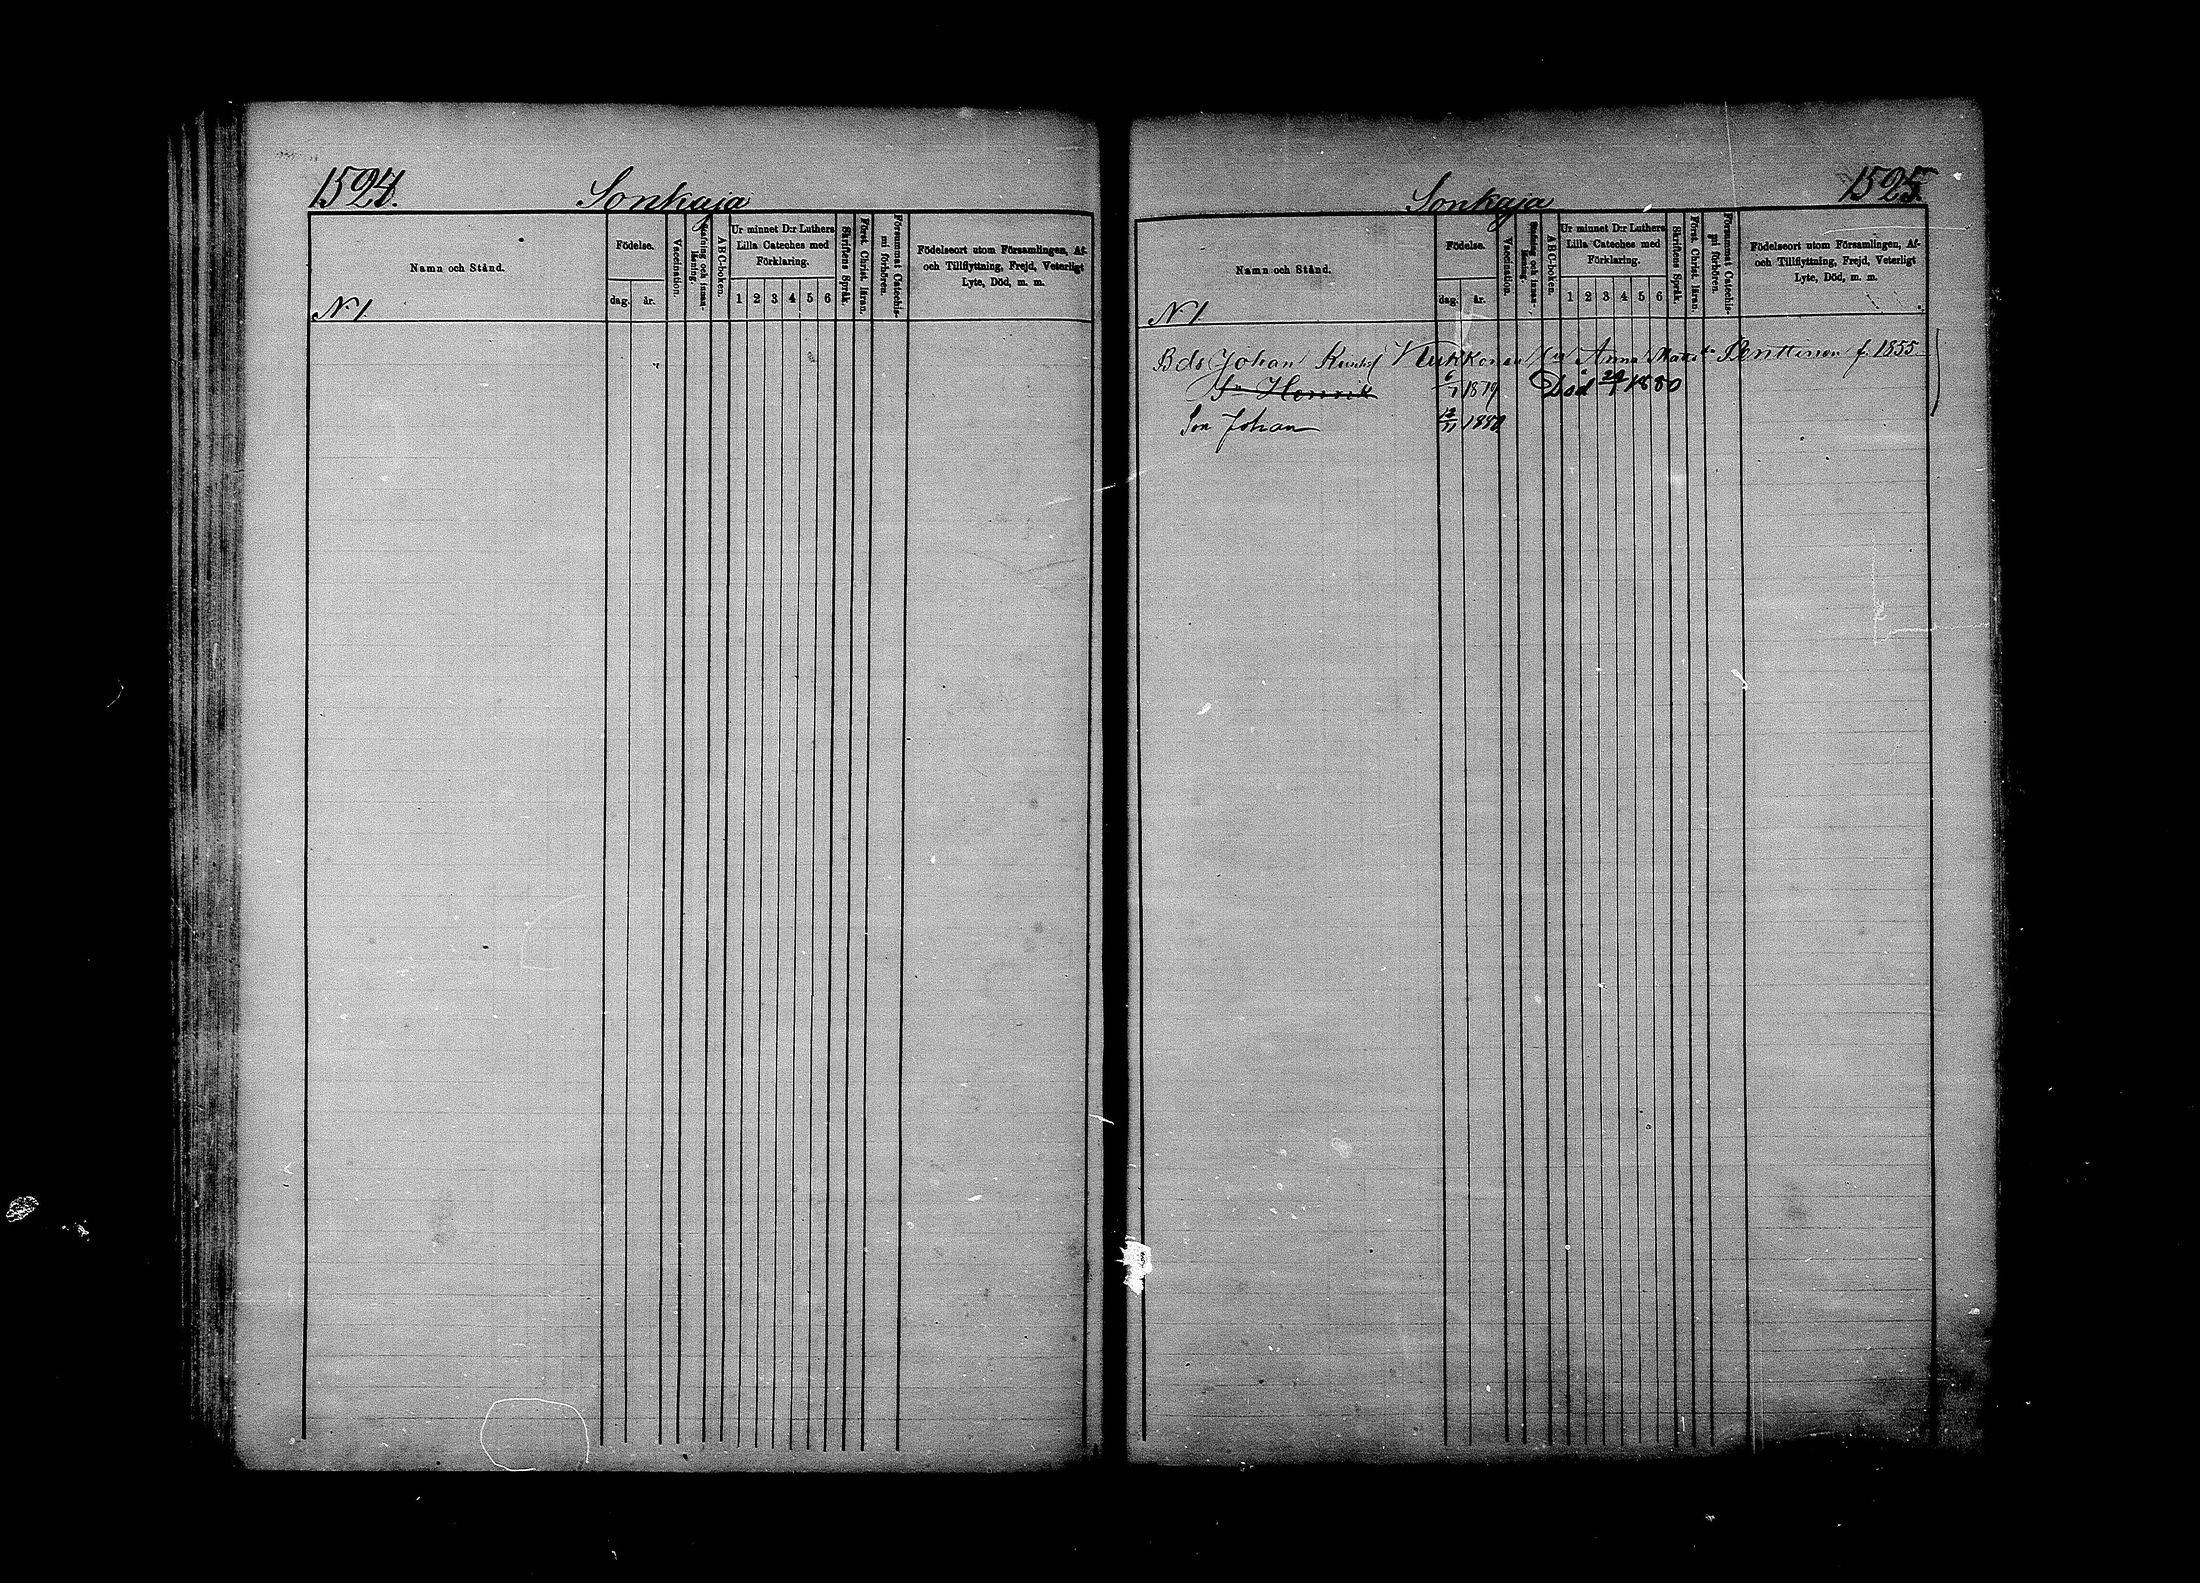 1524.
Sonkaja
Namn och Stånd.
Födelse.
dag.
år.
Vaccination.
Stafning och innanläsning
ABC-boken.
Ur minnet D:r Luthers
Lilla Cateches med
Förklaring.
1 2 3 4 5 6
Skriftens Språk.
Först. Christ. läran.
Försummat Catechismi förhören.
Födelseort utom Församlingen, Af-
och Tillflyttning, Frejd, Veterligt
Lyte, Död, m. m.
N:1.
Sonkaja
1525.
Namn och Stånd.
Födelse.
dag.
år.
Vaccination.
Stafning och innanläsning.
ABC-boken.
Ur minnet D:r Luthers
Lilla Cateches med
Förklaring.
1 2 3 4 5 6
Skriftens Språk.
Först. Christ. läran.
Försummat Catechismi förhören.
Födelseort utom Församlingen, Af-
och Tillflyttning, Frejd, Veterligt
Lyte, Död, m. m.
N:1.
Johan Kukkonen Anna Matts Penttinen f. 1855
Sn Henrik 6/1 1879 Död 1880
Son Johan 12/11 1880